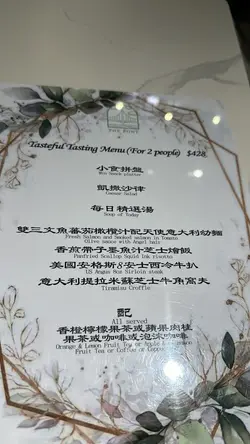 THE PORT
Tasteful Tasting Menu (For 2 people) $428
小食拼盤
凱撒沙律
Caesar Salad
每日精選湯
Soup of Today
雙三文魚蕃茄橄欖汁配天使意大利幼麵
Fresh Salmon and Smoked salmon in Tomato
Olive sauce with Angel hair
香煎帶子墨魚汁芝士燴飯
Panfried Scallop Squid Ink risotto
美國安格斯8安士西冷牛扒
US Angus 8oz Sirloin steak
意大利提拉米蘇芝士牛角窩夫
Tiramisu Croffle
配
All served
香橙檸檬果茶或蘋果肉桂
果茶或咖啡或泡沫咖啡
Orange & Lemon Fruit Tea or Apple & Cinnamon
Fruit Tea or Coffee or Cappuccino